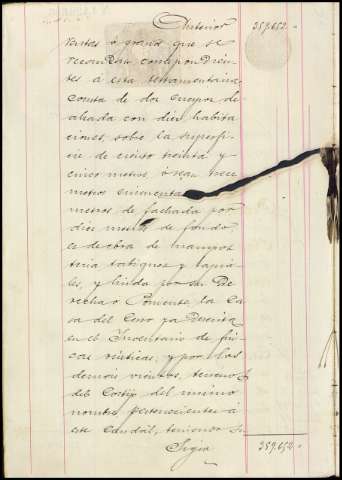 Anterior 359.652 "
rentes ó granos que se
recaudan correspondien
tes á esta testamentaria
consta de dos cuerpos de
alzada con diez habita
ciones, sobre la superfi
cie de ciento treinta y
cinco metros, ó sean trece
metros cincuenta
metros de fachada por
diez metros de fondo
es de obra de mampos
teria tabiques y tapia
les, y linda por su De
recha ó Poniente, la Ca
sa del Cerro ya descrita
en el Inventario de fin
cas rústicas, y por los
demas vientos, terrenos
del Cortijo del mismo
nombre pertenecientes á
este caudal, teniendo su
Sigue 359.652 "